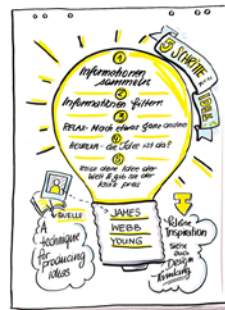 5 SCHRITTE
ZUR
IDEE
1
Informationen
sammeln
2
Informationen filtern
3
RELAX. Mach etwas ganz anderes
4
HEUREKA - die Idee ist da!
5
deine Idee der
Welt & gib sie der
Kritik preis
QUELLE
JAMES
WEBB
YOUNG
A
technique
for
producing
ideas
kleine
Inspiration
Siehe
auch
Design
Thinking